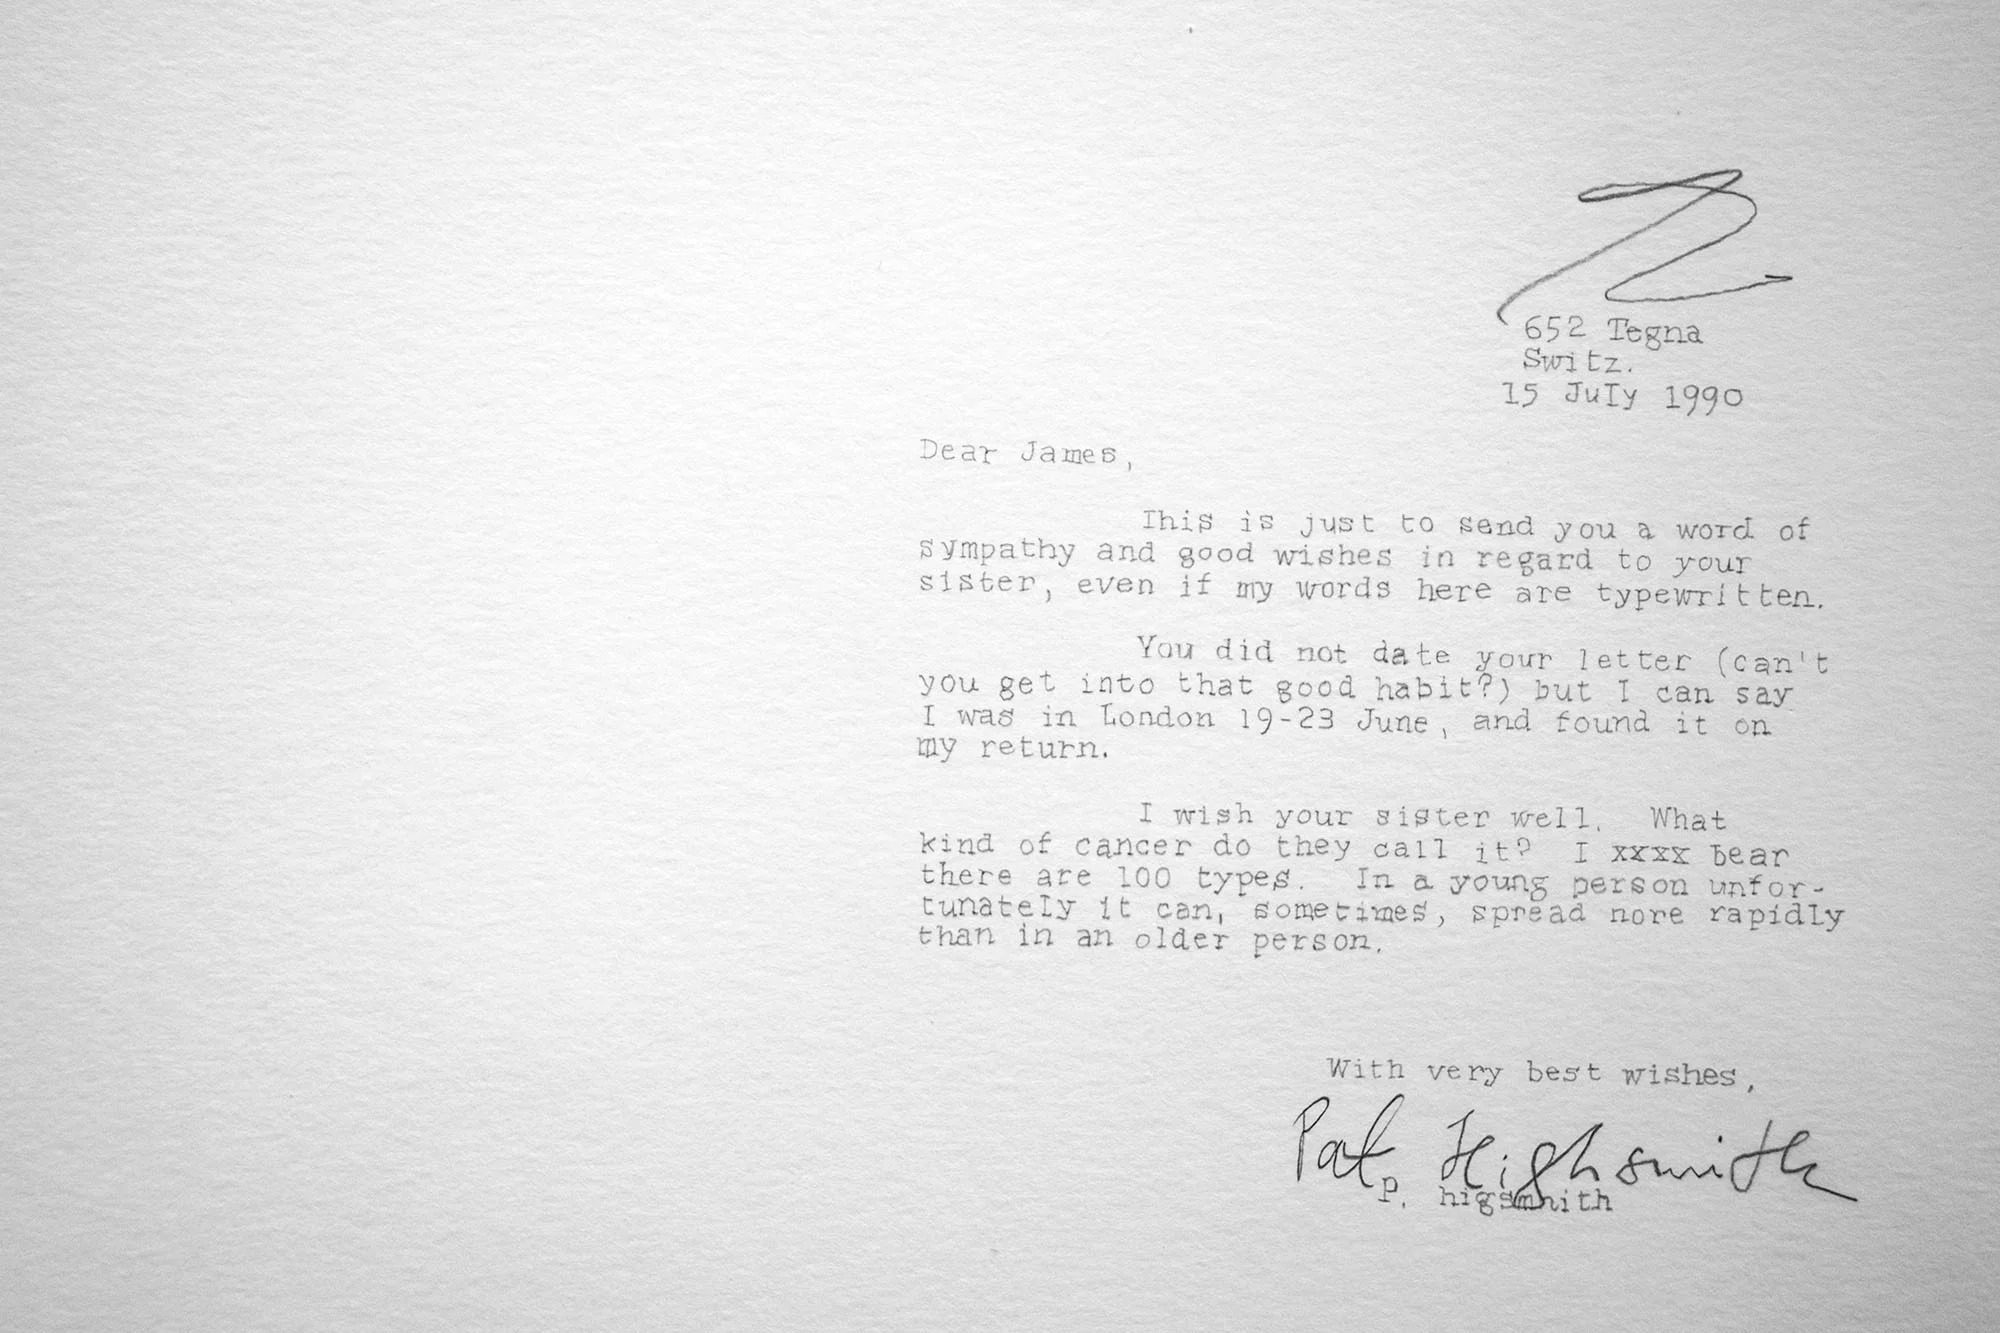 6652 Tegna
Switz.
15 July 1990
Dear James,
This is just to send you a word of
sympathy and good wishes in regard to your
sister, even if my words here are typewritten.
You did not date your letter (can't
you get into that good habit?) but I can say
I was in London 19-23 June, and found it on
my return.
I wish your sister well. What
kind of cancer do they call it? I xxxx bear
there are 100 types. In a young person unfor-
tunately it can, sometimes, spread nore rapidly
than in an older person.
With very best wishes,
Pat Highsmith
p. higsmhith